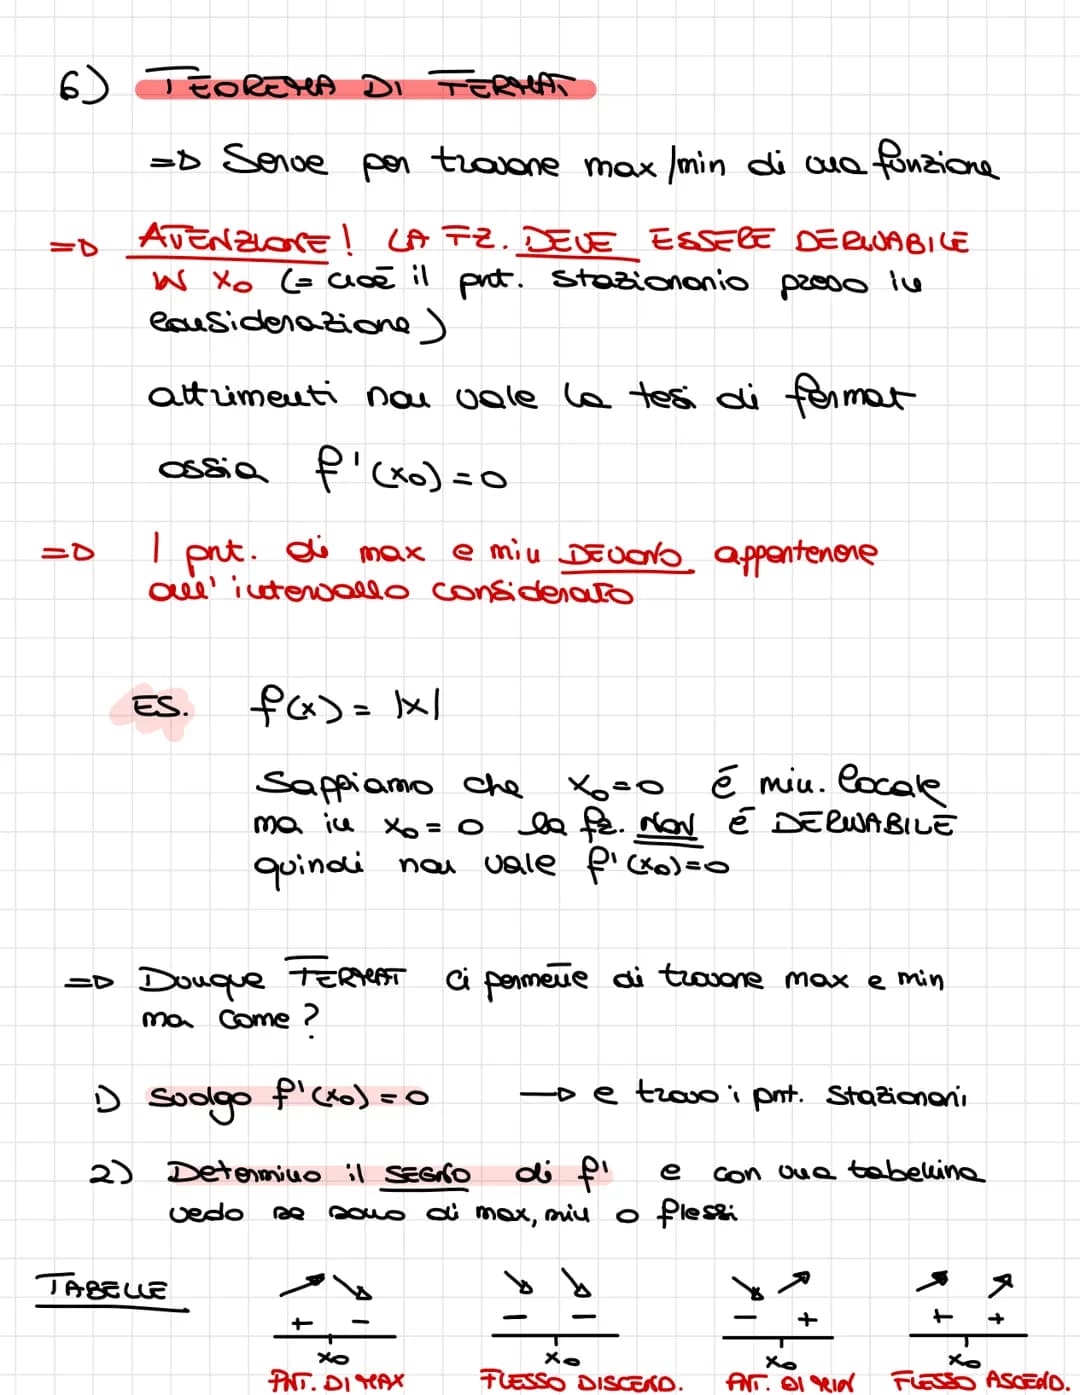 6) TEOREMA DI FERMAT
=> Serve per trovare max/min di una funzione
=> ATTENZIONE! LA FZ. DEVE ESSERE DERIVABILE
IN x₀ (= cioè il pnt. stazionario preso in
considerazione)
altrimenti non vale la tesi di fermat
ossia f'(x₀)=0
=> I pnt. di max e min DEVONO appartenere
all'intervallo considerato
ES. f(x) = |x|
Sappiamo che x₀=0 é min. locale
ma in x₀=0 la fz. NON é DERIVABILE
quindi non vale f'(x₀)=0
=> Dunque FERMAT ci permette di trovare max e min
ma come?
1) Svolgo f'(x₀)=0 → e trovo i pnt. stazionari
2) Determino il SEGNO di f' e con una tabellina
vedo se sono di max, min o flessi
TABELLE ↗ ↘ ↘ ↘ ↘ ↗ ↗ ↗
+ − − − − + + +
x₀ x₀ x₀ x₀
PNT. DI MAX FLESSO DISCEND. PNT. DI MIN FLESSO ASCEND.